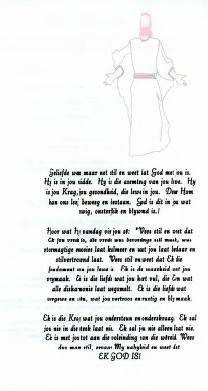 Geliefde wees maar net stil en weet dat God met ons is.
Hy is in jou midde. Hy is die asemteug van jou lewe. Hy
is jou Krag, jou gesondheid, die lewe in jou. Deur Hom
kan ons leef, beweeg en bestaan. God is dit in jou wat
ewig, onsterflik en blywend is!
Hoor wat Hy vandag vir jou sê: "Wees stil en weet dat
Ek jou vrede is, die vrede wat jou stil maak, wat
stormagtige laat kalmeer en wat jou laat bedaar en
stilvertroeend laat. Wees stil en weet dat Ek die
fondament van jou lewe is. Ek is die waarheid wat jou
vrymaak. Ek is die liefde wat jou hart vul, die Een wat
alle disharmonie laat wegsmelt. Ek is die liefde wat
vergewe en wat jou vertroos en rustig en bly maak.
Ek is die Krag wat jou ondersteun en onderskraag. Ek sal
jou nie in die steek laat nie. Ek sal jou nie alleen laat nie.
Ek is met jou tot aan die voleinding van die wêreld. Wees
dus maar stil, ervaar My nabyheid en weet dat
EK GOD IS!